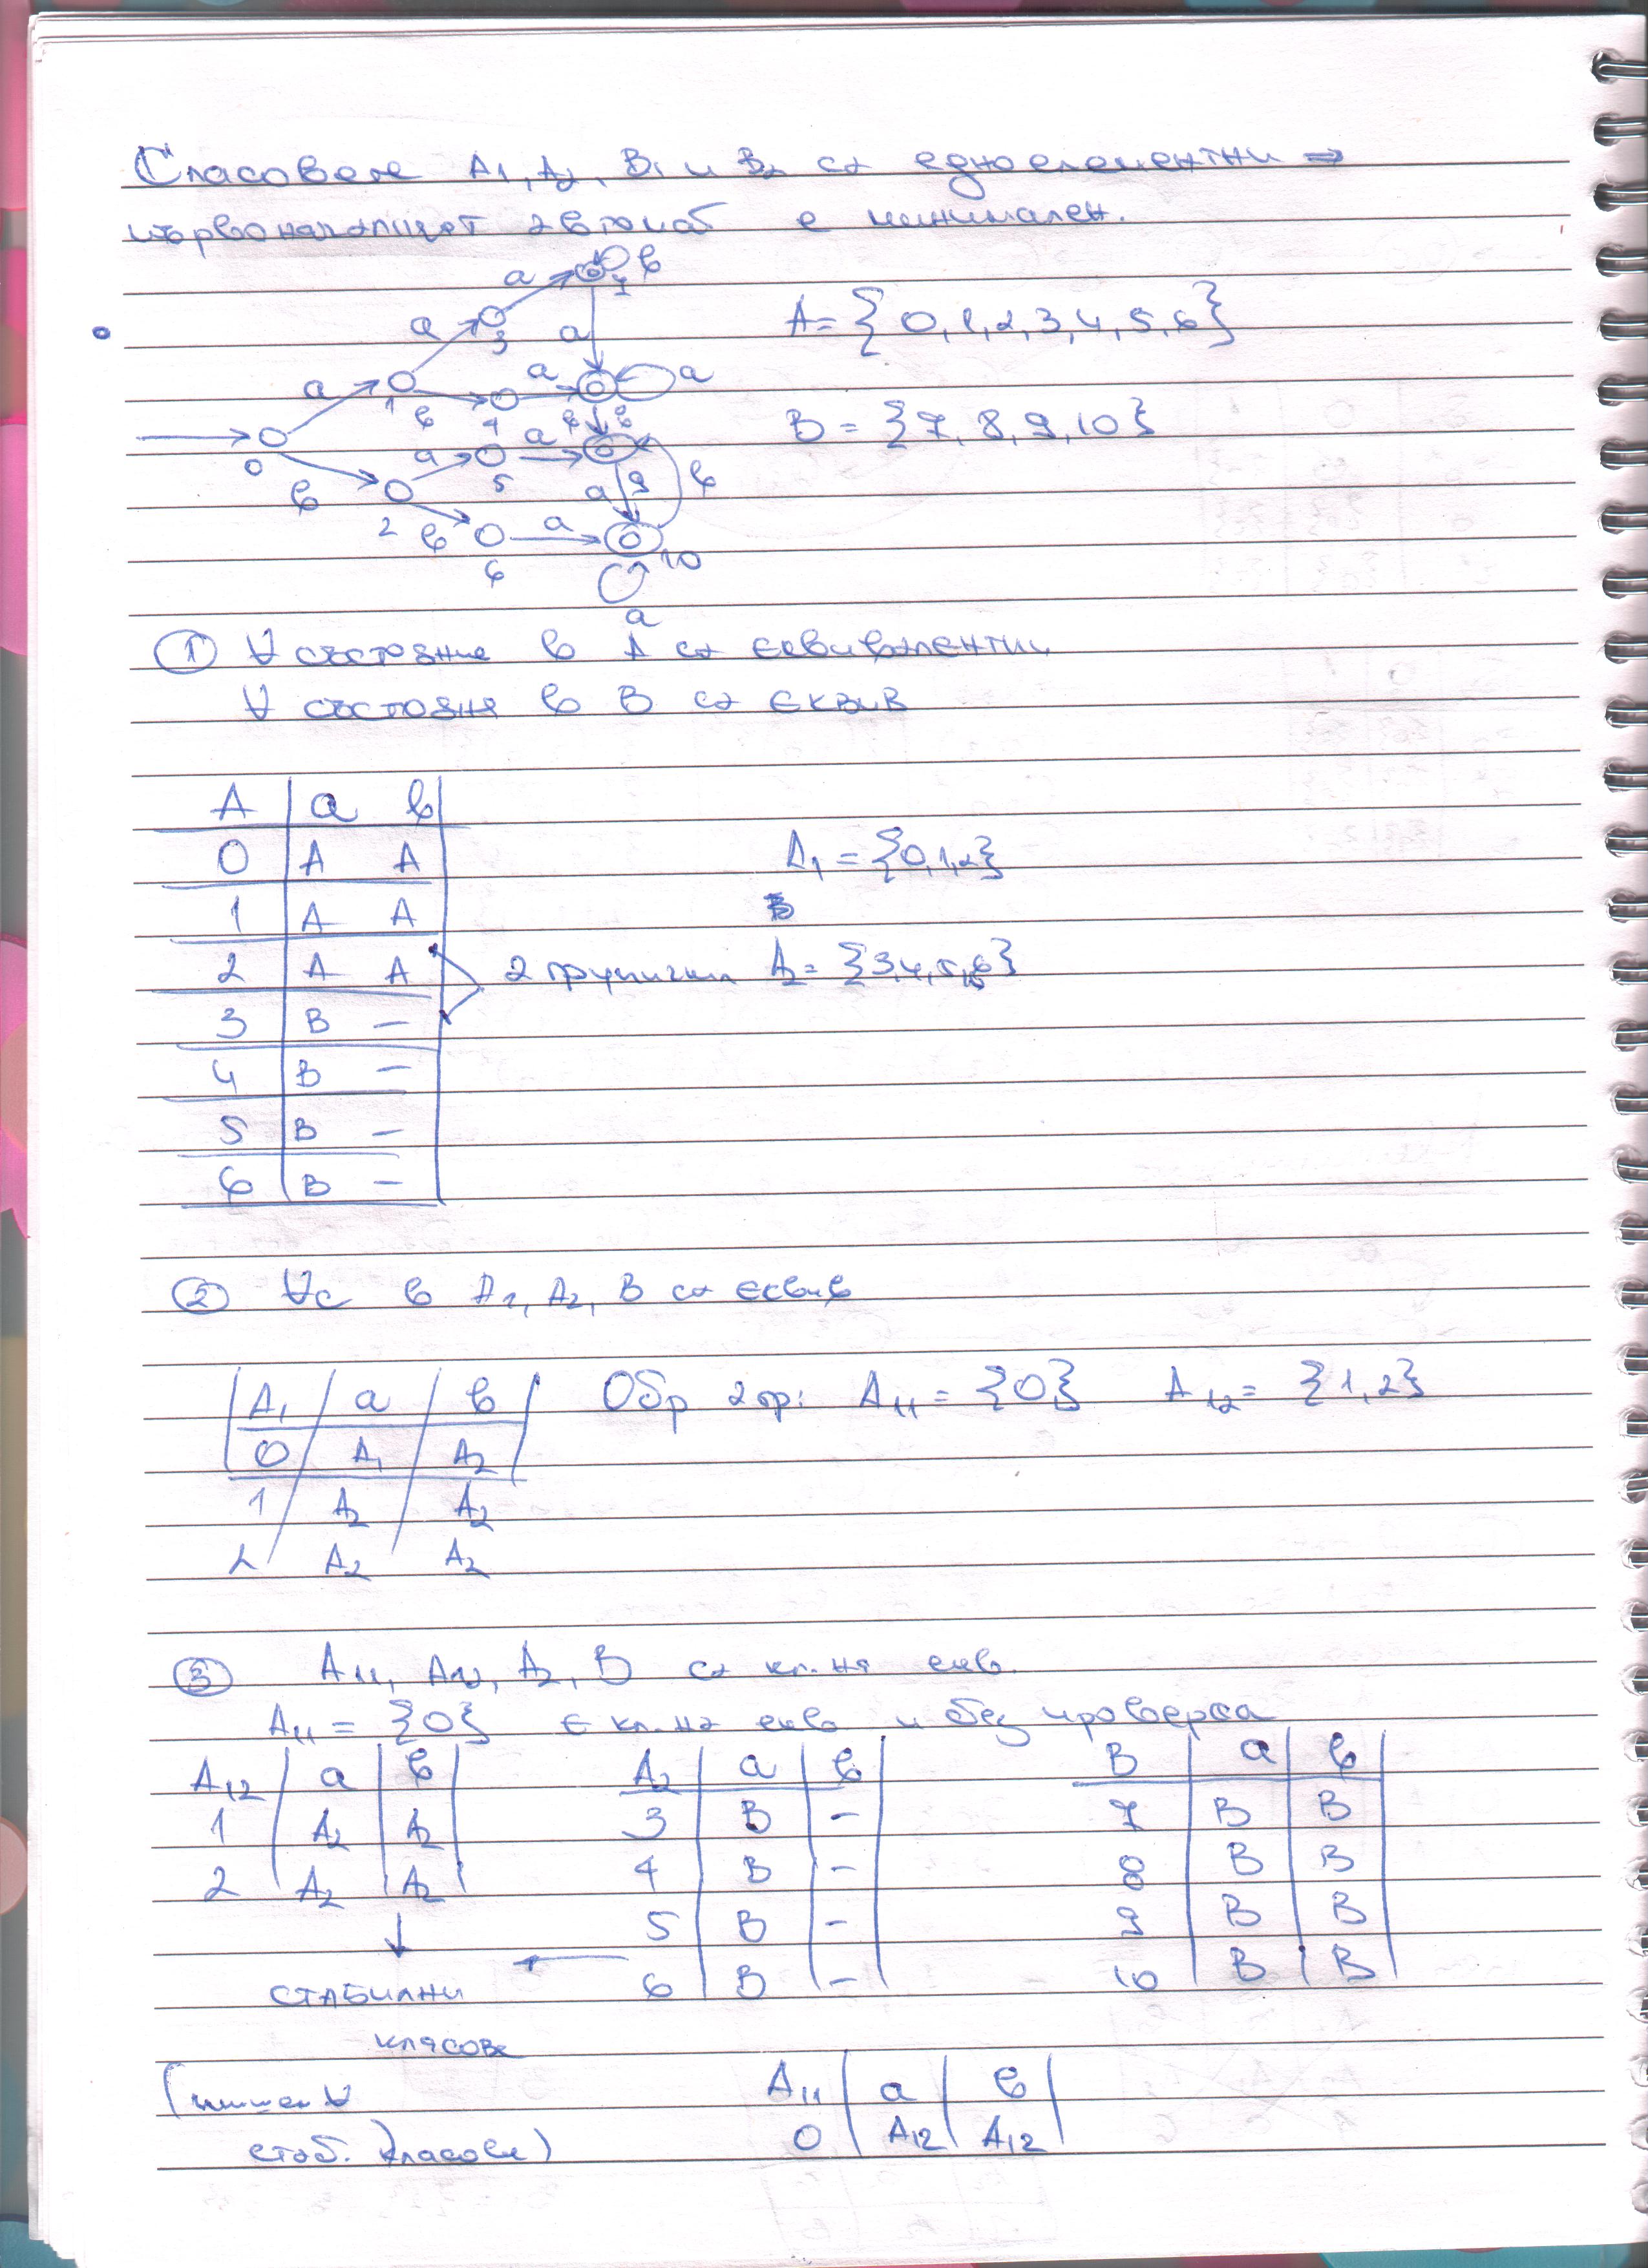 Класовете A₁, A₂, B₁ и B₂ са едноелементни ⇒
първоначалният автомат е минимален.
A = {0, 1, 2, 3, 4, 5, 6}
B = {7, 8, 9, 10}
a a a в a
a в a a
a a в
в a в
в a a
a
0 1 2 3 4 5 6 7 8 9 10
① ∀ състояние в A са еквивалентни
∀ състояния в B са еквив
A a в
0 A A
1 A A
2 A A
3 B –
4 B –
5 B –
6 B –
A₁ = {0,1,2}
2 групички A₂ = {3,4,5,6}
② ∀с в A₁, A₂, B са еквив
A₁ a в
0 A₁ A₂
1 A₂ A₂
2 A₂ A₂
Обр 2 гр: A₁₁ = {0} A₁₂ = {1,2}
③ A₁₁, A₁₂, A₂, B са кл. на екв.
A₁₁ = {0} е кл. на екв и без проверка
A₁₂ a в
1 A₂ A₂
2 A₂ A₂
A₂ a в
3 B –
4 B –
5 B –
6 B –
B a в
7 B B
8 B B
9 B B
10 B B
стабилни
класове
(пишем ∀
стаб. класове)
A₁₁ a в
0 A₁₂ A₁₂